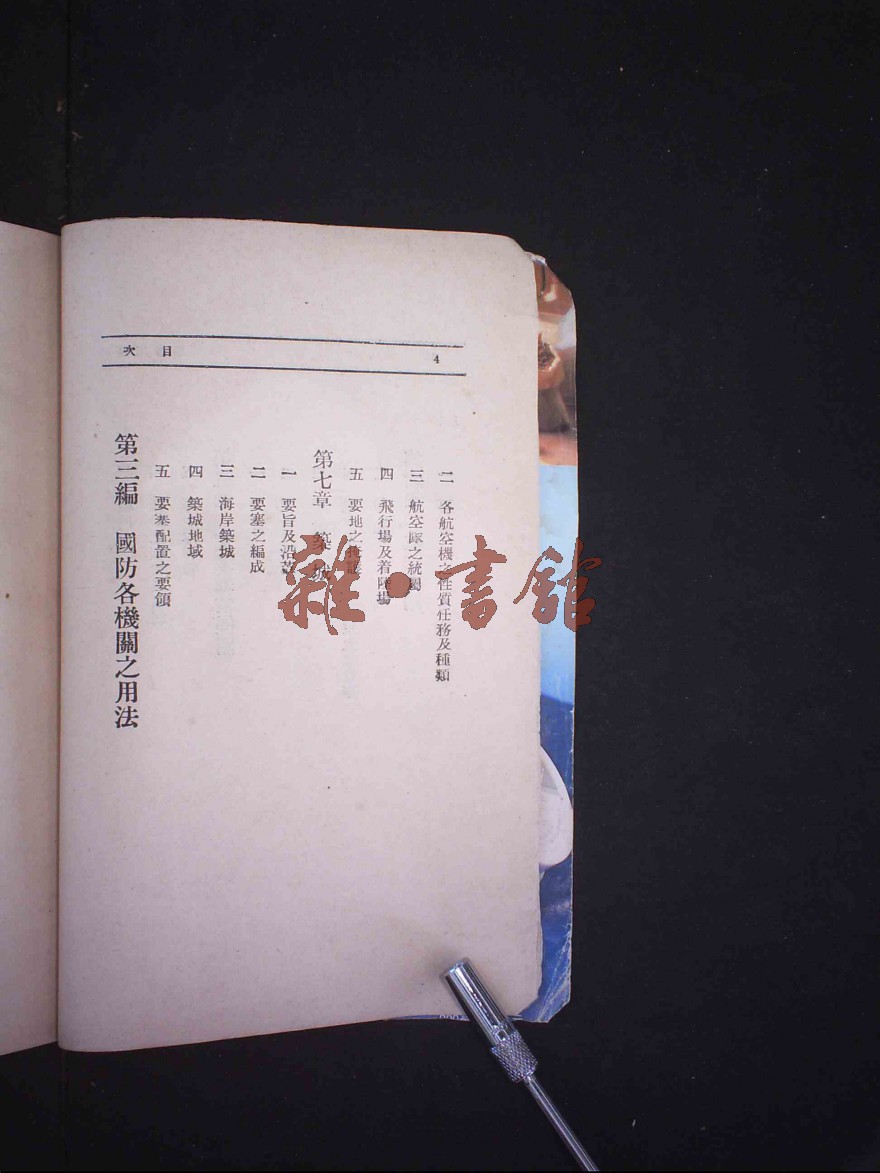 目次
4
二 各航空機之性質任務及種類
三 航空隊之統轄
四 飛行場及着陸場
五 要地之掩護
第七章 築城
一 要旨及沿革
二 要塞之編成
三 海岸築城
四 築城地域
五 要塞配置之要領
第三編 國防各機關之用法
雜·書館